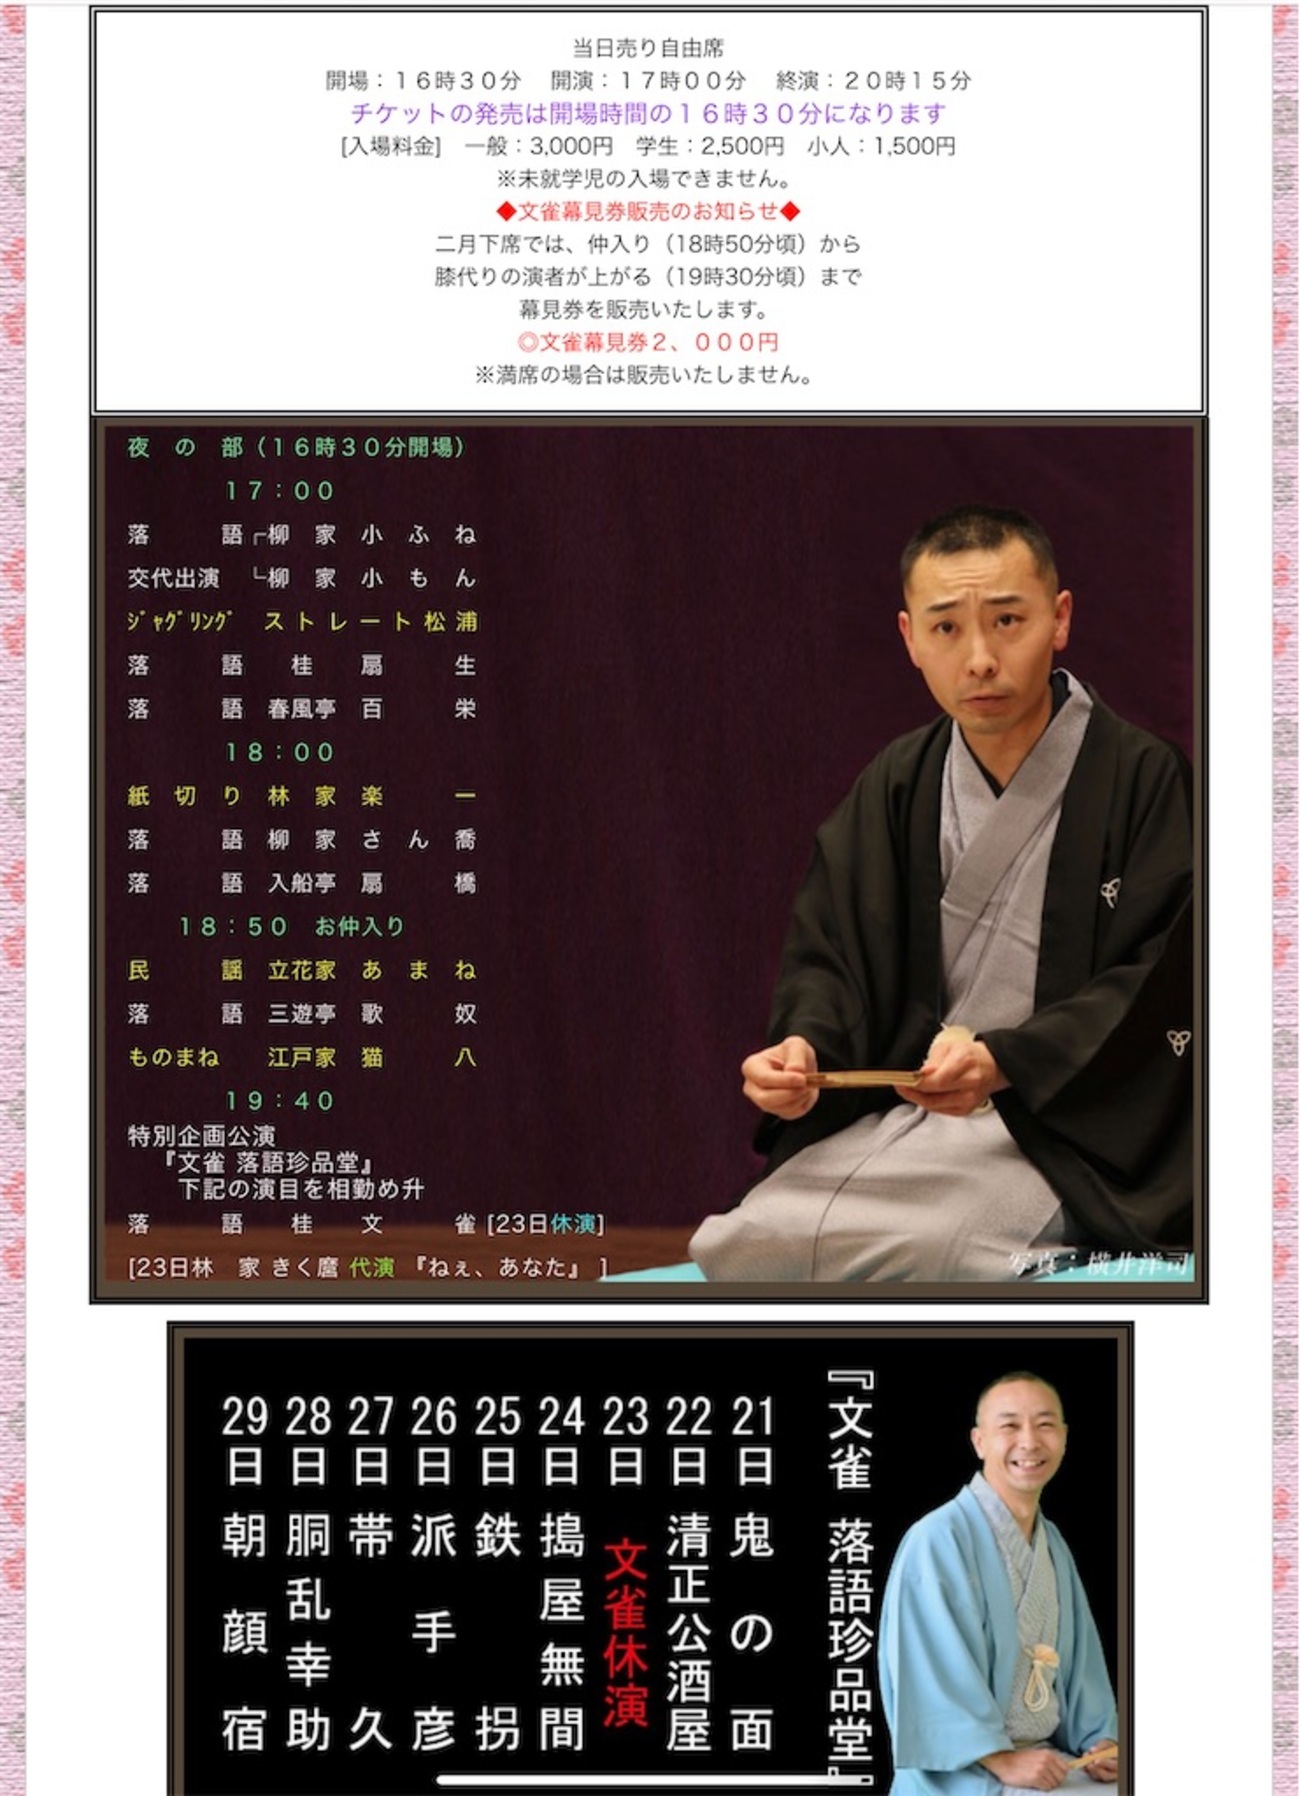 当日売り自由席
開場：１６時３０分　開演：１７時００分　終演：２０時１５分
チケットの発売は開場時間の１６時３０分になります
[入場料金]　一般：3,000円　学生：2,500円　小人：1,500円
※未就学児の入場できません。
◆文雀幕見券販売のお知らせ◆
二月下席では、仲入り（18時50分頃）から
膝代りの演者が上がる（19時30分頃）まで
幕見券を販売いたします。
◎文雀幕見券２、０００円
※満席の場合は販売いたしません。
夜　の　部（１６時３０分開場）
１７：００
落　　　語┌柳　家　小　ふ　ね
交代出演　└柳　家　小　も　ん
ｼﾞｬｸﾞﾘﾝｸﾞ　ストレート松浦
落　　　語　桂　　扇　　　生
落　　　語　春風亭　百　　　栄
１８：００
紙　切　り　林　家　楽　　　一
落　　　語　柳　家　さ　ん　喬
落　　　語　入船亭　扇　　　橋
１８：５０　お仲入り
民　　　謡　立花家　あ　ま　ね
落　　　語　三遊亭　歌　　　奴
ものまね　江戸家　猫　　　八
１９：４０
特別企画公演
『文雀 落語珍品堂』
下記の演目を相勤め升
落　　　語　桂　　文　　　雀 [23日休演]
[23日林　家 きく麿 代演 『ねぇ、あなた』 ]
写真：横井洋司
『文雀 落語珍品堂』
21日 鬼の面
22日 清正公酒屋
23日 文雀休演
24日 搗屋無間
25日 鉄拐
26日 派手彦
27日 帯久
28日 胴乱幸助
29日 朝顔宿